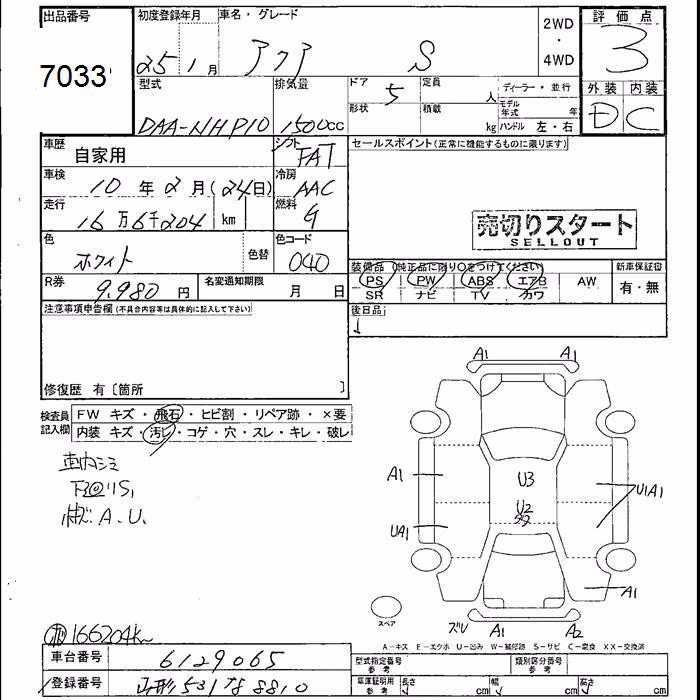 出品番号
7033
初度登録年月
25 1 月
車名・グレード
アクア S
2WD
・
4WD
評価点
3
外装 内装
D C
型式
DAA-NHP10
排気量
1500cc
ドア
5
形状
定員
人
積載
kg
ディーラー・並行
モデル年式 年
ハンドル 左・右
車歴
自家用
シフト
FAT
車検
10 年 2 月 (24日)
冷房
AAC
走行
16 万 6千 204 km
燃料
G
色
ホワイト
色替
色コード
040
R券
9,980 円
名変通知期限
月 日
セールスポイント(正常に機能するものに限ります)
売切りスタート
SELLOUT
装備品(純正品に限り○をつけてください)
PS PW ABS エアB AW
SR ナビ TV カワ
新車保証書
有・無
後日品
注意事項申告欄(不具合内容等は具体的に記入して下さい)
修復歴 有〔箇所 〕
検査員
記入欄
FW キズ・飛石・ヒビ割・リペア跡・×要
内装 キズ・汚レ・コゲ・穴・スレ・キレ・破レ
車内シミ
A.U.
A1 A1
A1
U3
U2
U1A1
UA1
A1
スペア
ズU A1 A2
166204k
A−キズ E−エクボ U−凹み W−補修跡 S−サビ C−腐食 XX−交換済
車台番号
6129065
登録番号
山形 531 な 8810
型式指定番号
参考
類別区分番号
参考
車庫証明用
参考
長さ cm
幅 cm
高さ cm